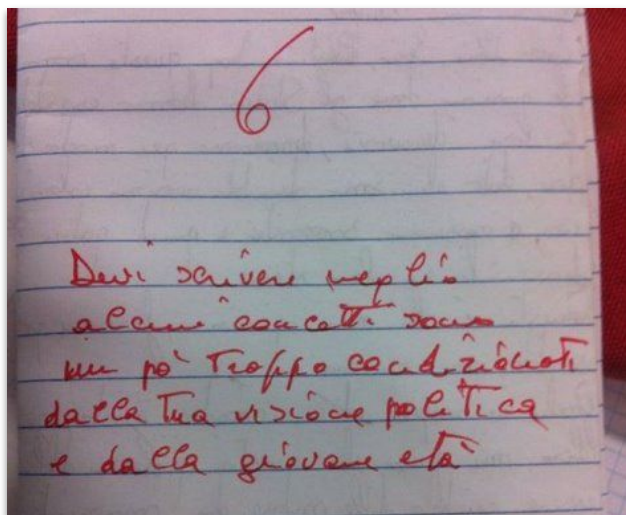 6
Devi scrivere meglio
alcuni concetti sono
un pò troppo condizionati
dalla tua visione politica
e dalla giovane età